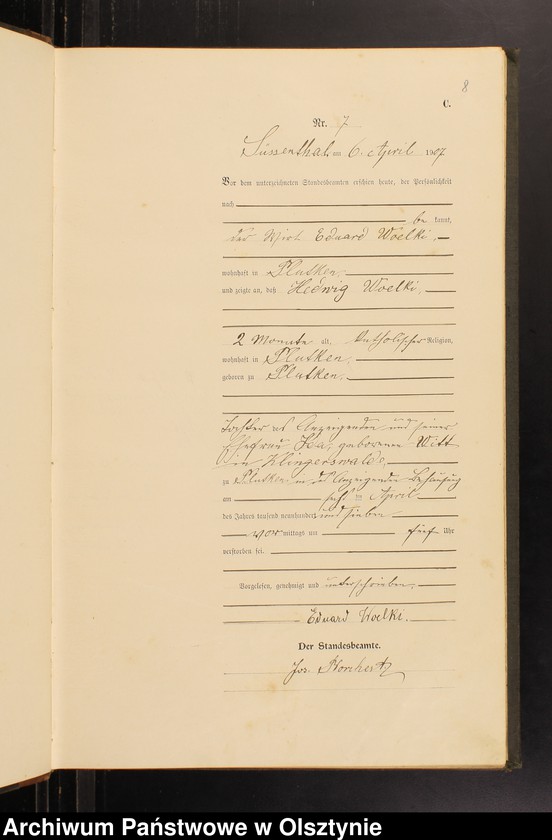 8
C.
Nr. 7
Süssenthal am 6. April 1907
Vor dem unterzeichneten Standesbeamten erschien heute, der Persönlichkeit
nach
be kannt,
der Wirt Eduard Woelki.
wohnhaft in Plutken.
und zeigte an, daß Hedwig Woelki,
2 Monate alt, katholischer Religion,
wohnhaft in Plutken,
geboren zu Plutken,
Tochter des Anzeigenden und seiner
Ehefrau geborenen Witt
in Klingerswalde,
zu Plutken in des Anzeigenden Behausung
am April
des Jahres tausend neunhundert und sieben
vor mittags um fünf Uhr
verstorben sei.
Vorgelesen, genehmigt und unterschrieben.
Eduard Woelki.
Der Standesbeamte.
Jos.
Archiwum Państwowe w Olsztynie